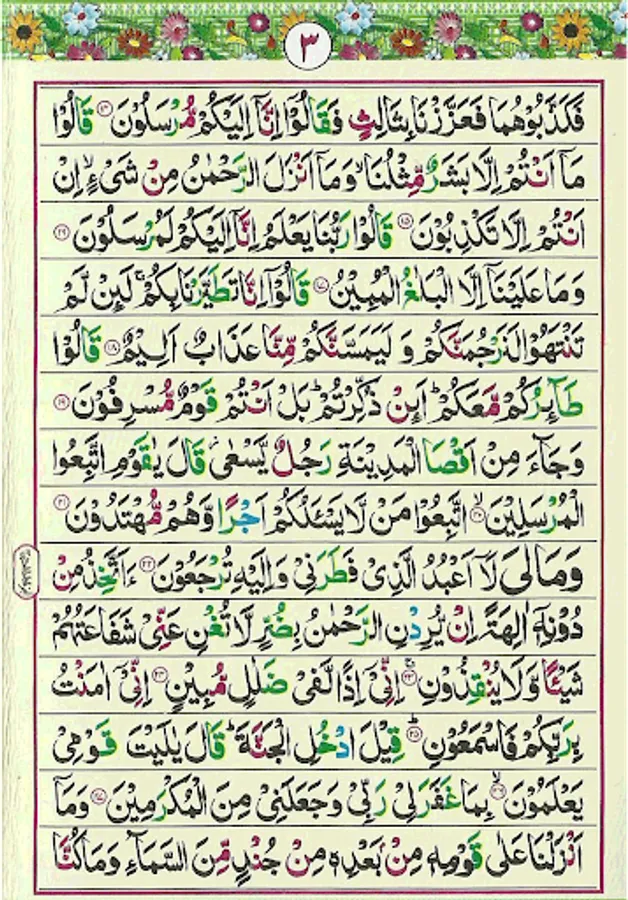 ٣
فَكَذَّبُوْهُمَا فَعَزَّزْنَا بِثَالِثٍ فَقَالُوْٓا اِنَّآ اِلَيْكُمْ مُّرْسَلُوْنَ ﴿١٤﴾ قَالُوْا
مَآ اَنْتُمْ اِلَّا بَشَرٌ مِّثْلُنَا ۙ وَمَآ اَنْزَلَ الرَّحْمٰنُ مِنْ شَىْءٍ ۙ اِنْ
اَنْتُمْ اِلَّا تَكْذِبُوْنَ ﴿١٥﴾ قَالُوْا رَبُّنَا يَعْلَمُ اِنَّآ اِلَيْكُمْ لَمُرْسَلُوْنَ ﴿١٦﴾
وَمَا عَلَيْنَآ اِلَّا الْبَلٰغُ الْمُبِيْنُ ﴿١٧﴾ قَالُوْٓا اِنَّا تَطَيَّرْنَا بِكُمْ ۚ لَىِٕنْ لَّمْ
تَنْتَهُوْا لَنَرْجُمَنَّكُمْ وَ لَيَمَسَّنَّكُمْ مِّنَّا عَذَابٌ اَلِيْمٌ ﴿١٨﴾ قَالُوْا
طَآىِٕرُكُمْ مَّعَكُمْ ؕ اَىِٕنْ ذُكِّرْتُمْ ؕ بَلْ اَنْتُمْ قَوْمٌ مُّسْرِفُوْنَ ﴿١٩﴾
وَجَآءَ مِنْ اَقْصَا الْمَدِيْنَةِ رَجُلٌ يَّسْعٰى ؗ قَالَ يٰقَوْمِ اتَّبِعُوا
الْمُرْسَلِيْنَ ۙ﴿٢٠﴾ اتَّبِعُوْا مَنْ لَّا يَسْـَٔلُكُمْ اَجْرًا وَّهُمْ مُّهْتَدُوْنَ ﴿٢١﴾
وَمَا لِىَ لَآ اَعْبُدُ الَّذِىْ فَطَرَنِىْ وَاِلَيْهِ تُرْجَعُوْنَ ﴿٢٢﴾ ءَاَتَّخِذُ مِنْ
دُوْنِهٖٓ اٰلِهَةً اِنْ يُّرِدْنِ الرَّحْمٰنُ بِضُرٍّ لَّا تُغْنِ عَنِّىْ شَفَاعَتُهُمْ
شَيْـًٔا وَّلَا يُنْقِذُوْنِ ۚ﴿٢٣﴾ اِنِّىْٓ اِذًا لَّفِىْ ضَلٰلٍ مُّبِيْنٍ ﴿٢٤﴾ اِنِّىْٓ اٰمَنْتُ
بِرَبِّكُمْ فَاسْمَعُوْنِ ؕ﴿٢٥﴾ قِيْلَ ادْخُلِ الْجَنَّةَ ؕ قَالَ يٰلَيْتَ قَوْمِىْ
يَعْلَمُوْنَ ۙ﴿٢٦﴾ بِمَا غَفَرَ لِىْ رَبِّىْ وَجَعَلَنِىْ مِنَ الْمُكْرَمِيْنَ ﴿٢٧﴾ وَمَآ
اَنْزَلْنَا عَلٰى قَوْمِهٖ مِنْۢ بَعْدِهٖ مِنْ جُنْدٍ مِّنَ السَّمَآءِ وَمَا كُنَّا